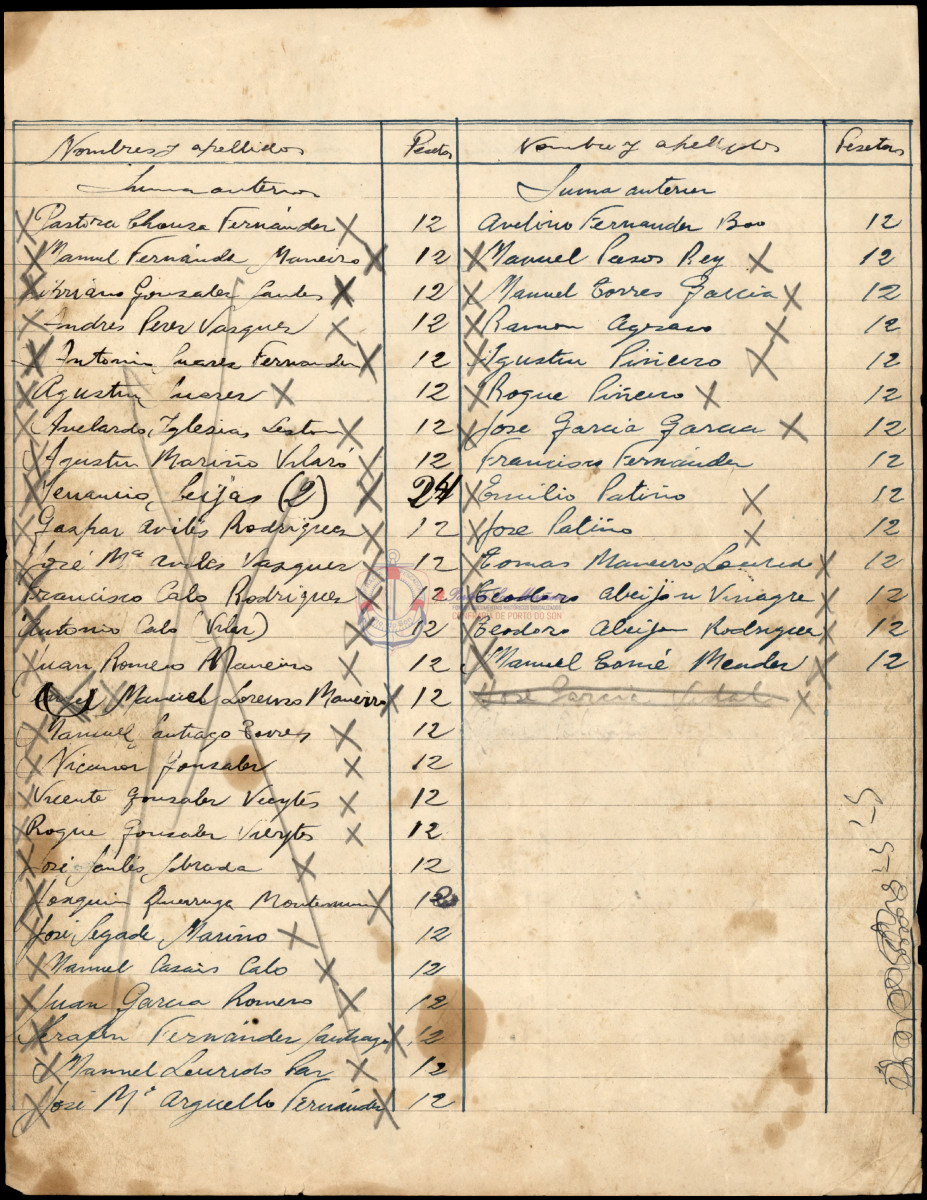 Nombres y apellidos Pesetas
Suma anterior
Pastora Chouza Fernández 12
Manuel Fernández Maneiro 12
Gonzalez Santos 12
Andres Perez Vasquez 12
Antonio Suarez Fernandez 12
Agustin Suarez 12
Avelardo Iglesias Leston 12
Agustin Mariño Vilaró 12
Venancio Seijas (2) 24
Gaspar Avilés Rodriguez 12
José Mª Aviles Vazquez 12
Francisco Calo Rodriguez 12
Antonio Calo (Vilar) 12
Juan Romero Maneiro 12
Manuel Lorenzo Maneiro 12
Manuel Santiago Torres 12
Nicanor Gonzalez 12
Vicente Gonzalez Vieytes 12
Roque Gonzalez Vieytes 12
José Santos Sobrada 12
Joaquin Queiruga 12
José Segade Mariño 12
Manuel Casais Calo 12
Juan Garcia Romero 12
Serafin Fernández Santiago 12
Manuel Lourido Paz 12
José Mª Arguello Fernández 12
Nombre y apellidos Pesetas
Suma anterior
Avelino Fernandez Boo 12
Manuel Pasos Rey 12
Manuel Torres Garcia 12
Ramon Ageitos 12
Agustin Piñeiro 12
Roque Piñeiro 12
Jose Garcia Garcia 12
Francisco Fernández 12
Emilio Patiño 12
Jose Patiño 12
Tomas Maneiro Lourido 12
Teodoro Abeijon Vinagre 12
Teodoro Abeijon Rodriguez 12
Manuel Tomé Mendez 12
José Garcia Vidal
COFRADÍA DE PORTO DO SON